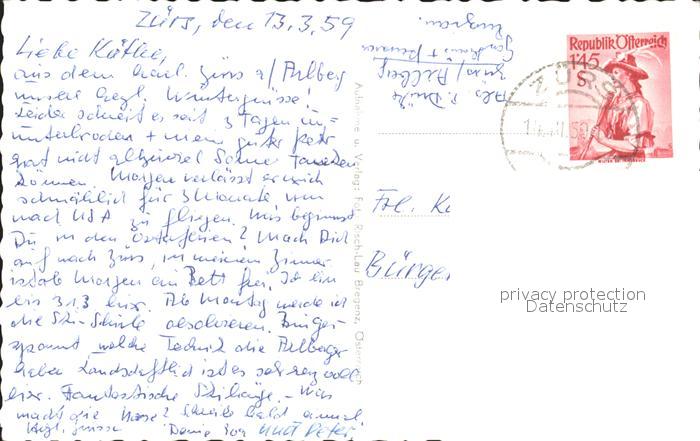 Zürs, den 13.3.59
Liebe Käthe,
aus dem herrl. Zürs a/Arlberg
unsere herzl. Wintergrüsse!
Leider schneit es seit 3 Tagen un-
unterbrochen + mein guter Peter
hat nicht allzuviel Sonne tanken
können. Morgen verlässt er mich
für 3 Monate, um
nach USA zu fliegen. Was beginnst
Du in den Osterferien? Mach Dich
auf nach Zürs, in meinem Zimmer
ist ab Morgen ein Bett frei. Ich bin
bis 31.3 hier. Ab Montag werde ich
die Ski-Schule absolvieren. Bin ge-
spannt welche Technik die Arlberger
haben. Landschaftlich ist es sehr reizvoll
hier. Fantastische Skihänge. - Was
macht die Nase? Schreib bald einmal
Herzl. Grüsse Deine und Peter
Abs.
Zürs/Arlberg
Republik Österreich
1.45
S
ZÜRS
Frl. Kä
Bürge
Aufnahme u. Verlag: Foto Risch-Lau Bregenz, Österreich
privacy protection
Datenschutz